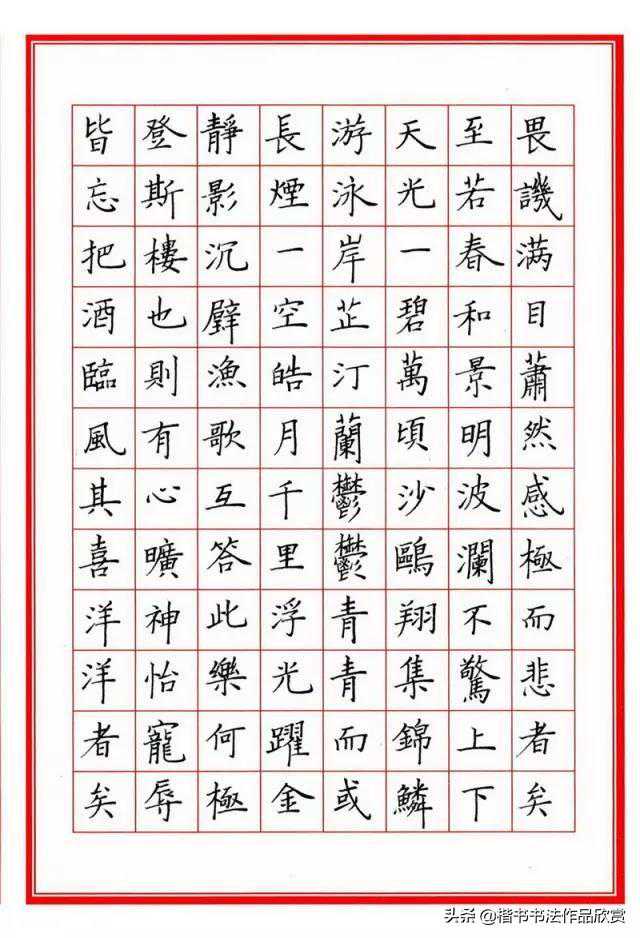 畏譏满目蕭然感極而悲者矣
至若春和景明波瀾不驚上下
天光一碧萬頃沙鷗翔集錦鱗
游泳岸芷汀蘭鬱鬱青青而或
長煙一空皓月千里浮光躍金
靜影沉璧漁歌互答此樂何極
登斯樓也則有心曠神怡寵辱
皆忘把酒臨風其喜洋洋者矣
头条 @楷书书法作品欣赏